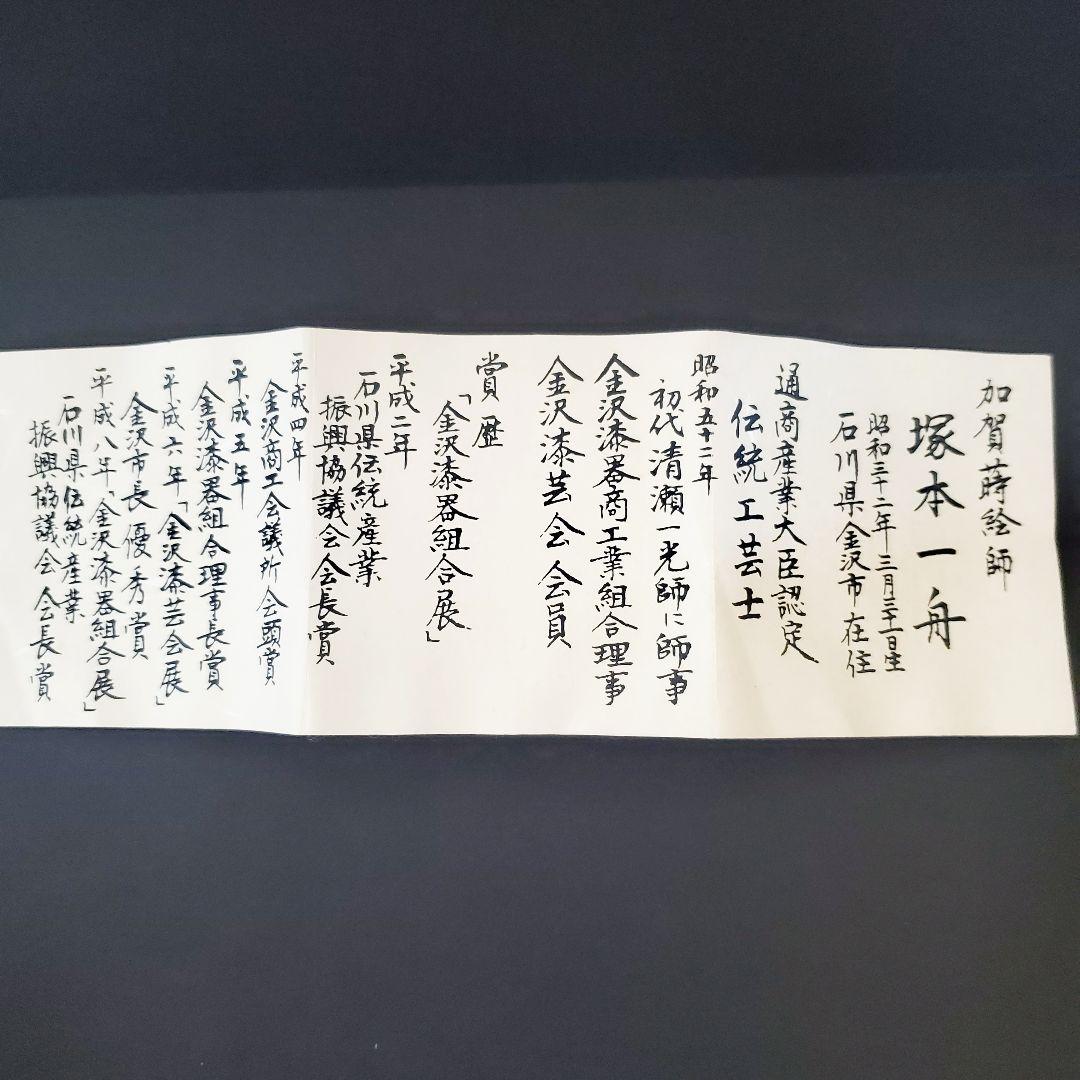 加賀蒔絵師
塚本一舟
昭和三十二年三月三十一日生
石川県金沢市在住
通商産業大臣認定
伝統工芸士
昭和五十二年
初代清瀬一光師に師事
金沢漆器商工業組合理事
金沢漆芸会会員
賞歴
「金沢漆器組合展」
平成二年
石川県伝統産業
振興協議会会長賞
平成四年
金沢商工会議所会頭賞
平成五年
金沢漆器組合理事長賞
平成六年「金沢漆芸会展」
金沢市長優秀賞
平成八年「金沢漆器組合展」
石川県伝統産業
振興協議会会長賞